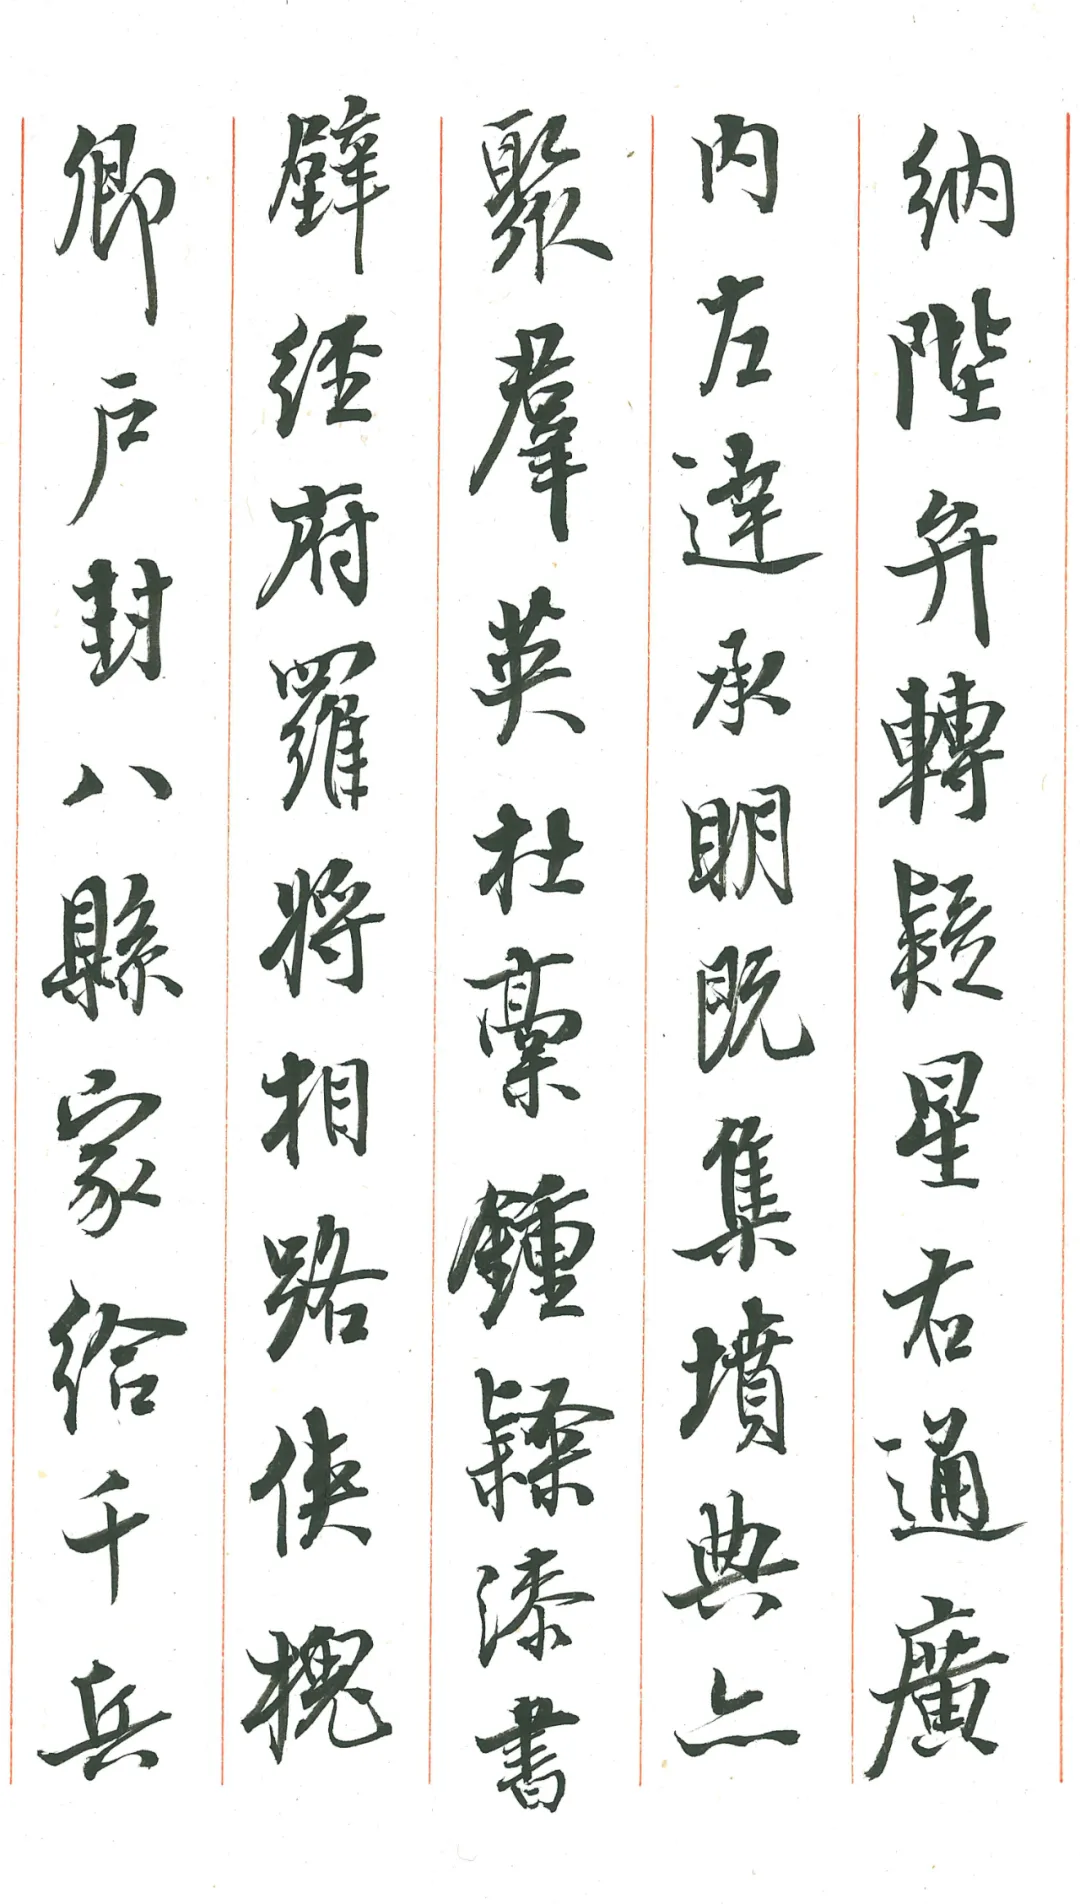 納陛弁轉疑星右通廣
内左達承明既集墳典亦
聚羣英杜稾鍾隸漆書
壁經府羅將相路俠槐
卿户封八縣家給千兵